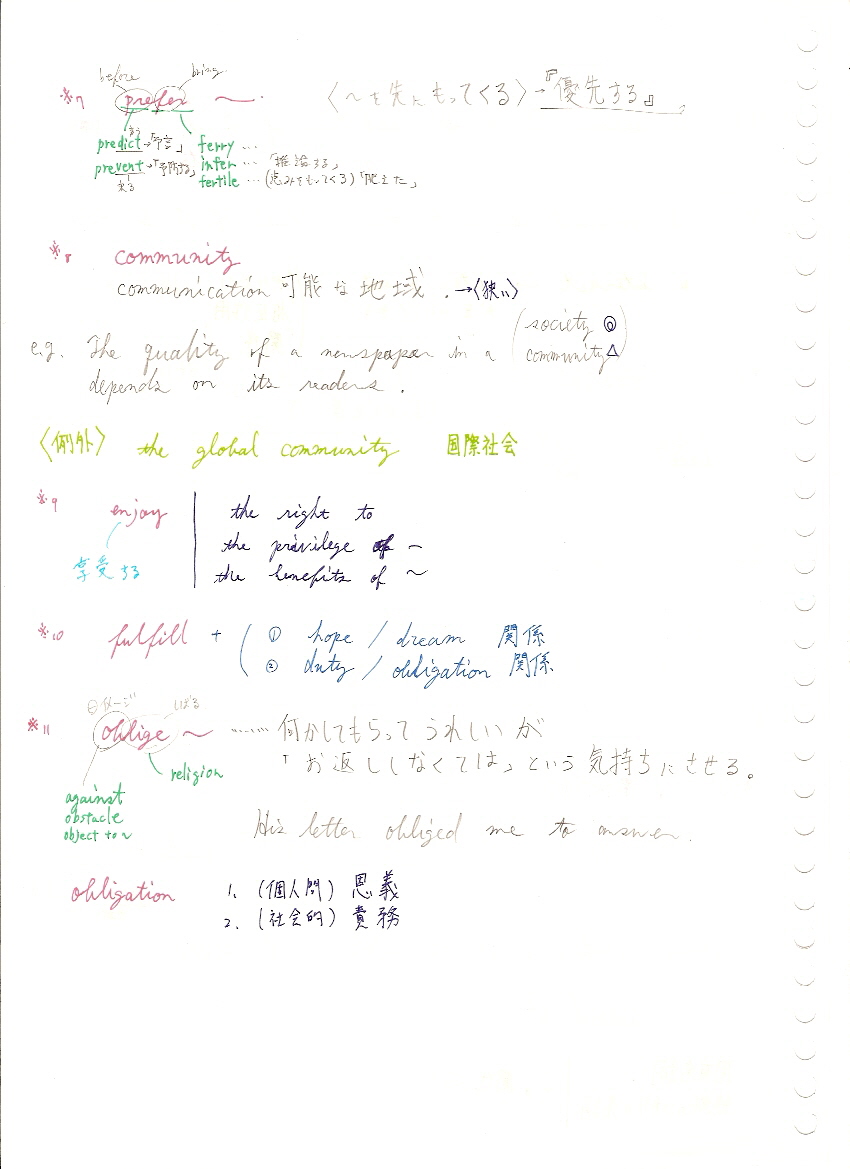 before bring
※7 prefer ～. 〈～を先にもってくる〉→『優先する』
言う
predict→「予言」 ferry …
prevent→「予防する」 infer … 「推論する」
来る fertile …(恵みをもってくる)「肥えた」
※8 community
communication 可能な地域. →〈狭い〉
e.g. The quality of a newspaper in a (society ◎
community△)
depends on its readers.
〈例外〉 the global community 国際社会
※9 enjoy the right to
the privilege of ～
享受する the benefits of ～
※10 fulfill + ① hope / dream 関係
② duty / obligation 関係
⊖イメージ しばる
※11 oblige ～ …… 何かしてもらって うれしいが
「お返ししなくては」という気持ちにさせる。
religion
against
obstacle
object to ～
His letter obliged me to answer.
obligation 1. (個人間) 恩義
2. (社会的) 責務